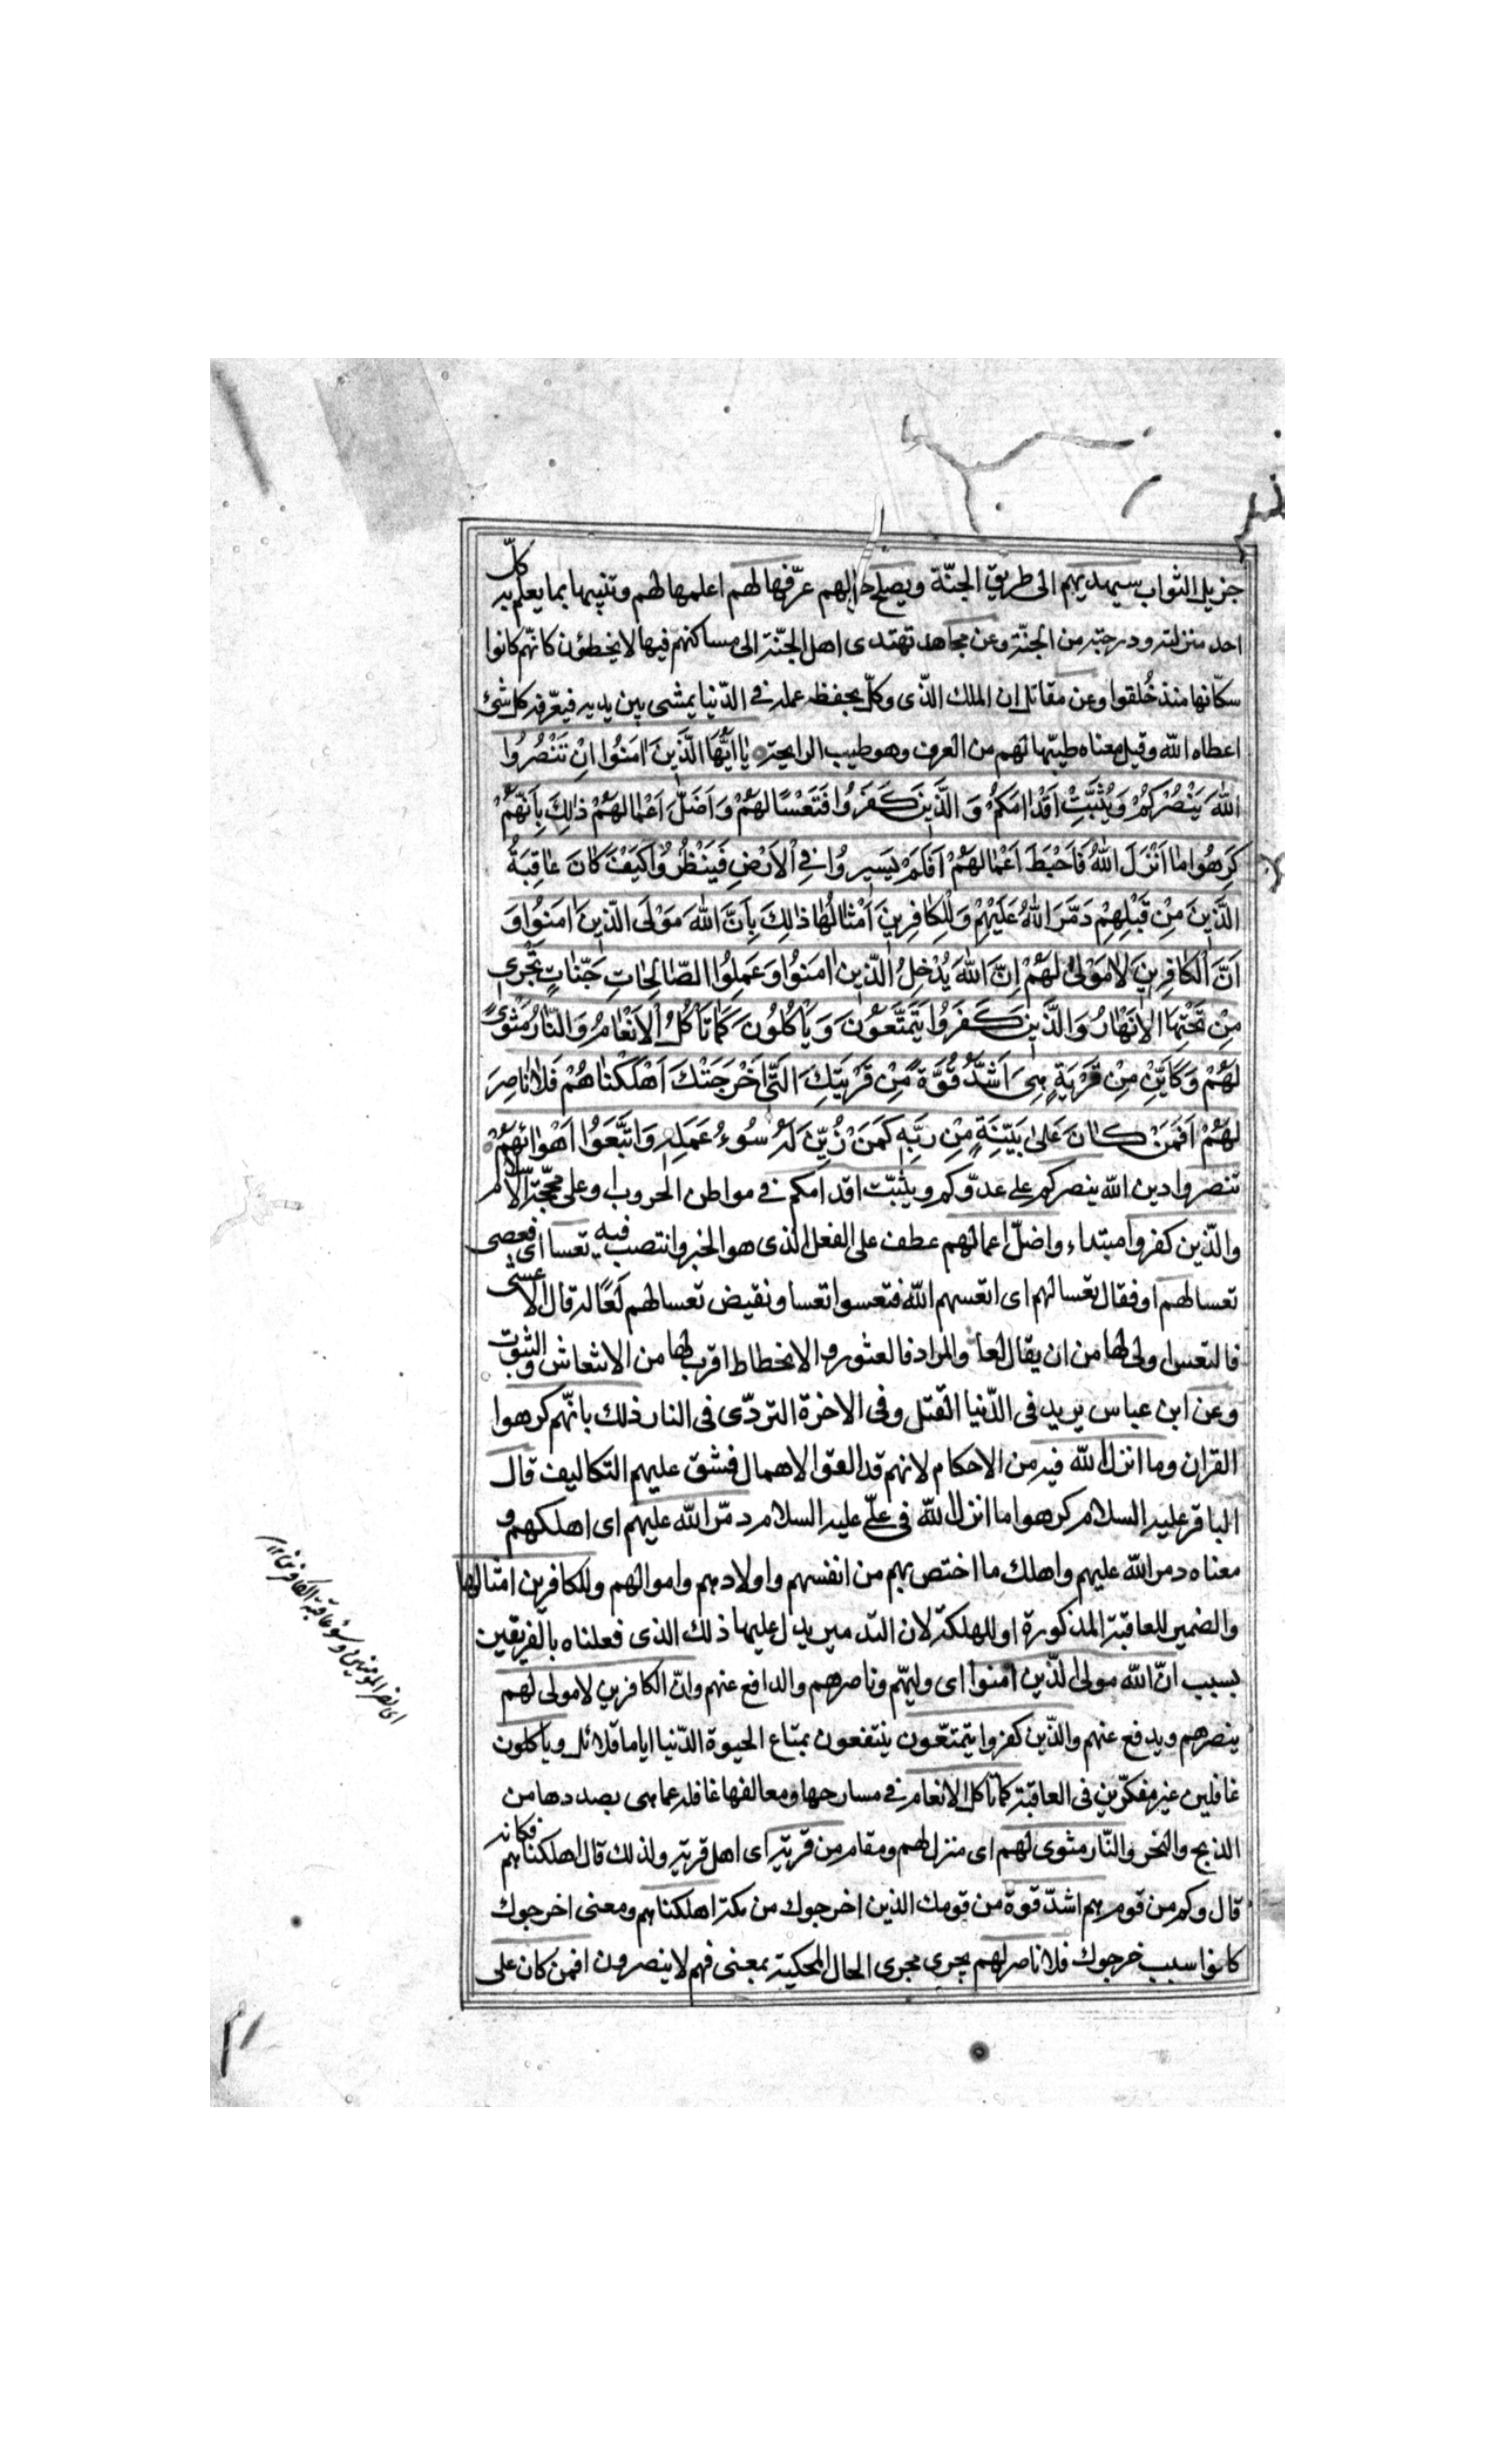 جزيل الثواب سيهديهم الى طريق الجنّة ويصلح بالهم عرّفها لهم اعلمها لهم وتنبيها بما يعلم به كلّ
احد منزلته ودرجته من الجنّة وعن مجاهد تهتدى اهل الجنّة الى مساكنهم فيها لا يخطؤن كانّهم كانوا
سكّانها منذ خُلقوا وعن مقاتل ان الملك الذّى وكلّ بحفظه عمله في الدّنيا يمشى بين يديه فيعرّفه كل شئ
اعطاه الله وقيل معناه طيبّها لهم من العرف وهو طيب الرايحة يا اَيُّهَا الَّذينَ اٰمَنُوا اِنْ تَنْصُرُوا
اللهَ يَنْصُرْكُمْ وَيُثَبِّتْ اَقْدٰامَكُمْ وَ الَّذينَ كَفَرُوا فَتَعْسًا لَهُمْ وَ اَضَلَّ اَعْمٰالَهُمْ ذٰلِكَ بِاَنَّهُمْ
كَرِهُوا مٰا اَنْزَلَ اللهُ فَاَحْبَطَ اَعْمٰالَهُمْ اَفَلَمْ يَسيرُوا فِى اْلاَرْضِ فَيَنْظُرُوا كَيْفَ كٰانَ عٰاقِبَةُ
الَّذينَ مِنْ قَبْلِهِمْ دَمَّرَ اللهُ عَلَيْهِمْ وَلِلْكٰافِرينَ اَمْثٰالُهٰا ذٰلِكَ بِاَنَّ اللهَ مَوْلَى الَّذينَ اٰمَنُوا وَ
اَنَّ الْكٰافِرينَ لاٰ مَوْلىٰ لَهُمْ اِنَّ اللهَ يُدْخِلُ الَّذينَ اٰمَنُوا وَ عَمِلُوا الصّٰالِحٰاتِ جَنّٰاتٍ تَجْرى
مِنْ تَحْتِهَا الاَنْهٰارُ وَالَّذينَ كَفَرُوا يَتَمَتَّعُونَ وَ يَأْكُلُونَ كَمٰا تَأْكُلُ اْلاَنْعٰامُ وَالنّٰارُ مَثْوىً
لَهُمْ وَ كَاَيِّنْ مِنْ قَرْيَةٍ هِىَ اَشَدُّ قُوَّةً مِنْ قَرْيَتِكَ الَّتى اَخْرَجَتْكَ اَهْلَكْنٰاهُمْ فَلاٰ نٰاصِرَ
لَهُمْ اَفَمَنْ كٰانَ عَلىٰ بَيِّنَةٍ مِنْ رَبِّهِ كَمَنْ زُيِّنَ لَهُ سُوءُ عَمَلِهِ وَ اتَّبَعُوا اَهْوٰائَهُمْ
تنصروا دين الله ينصركم على عدّوكم ويثبّت اقدامكم في مواطن الحروب او على محجّة الاسلام
والذّين كفروا مبتداء واضلّ اعمالهم عطف على الفعل الذى هو الخبر وانتصب فيه تعسا اى فعصى
تعسا لهم او فقال تعسا لهم اى اتعسهم الله فتعسوا تعسا ونقيض تعسا لهم لعًا له قال الاعشى
فالتعس اولى لها من ان يقال لعا والمراد فالعثور والانحطاط اقرب لها من الانتعاش والثبوت
وعن ابن عباس يريد فى الدّنيا القتل وفى الاخرة التردّى فى النار ذلك بانّهم كرهوا
القران وما انزل الله فيه من الاحكام لانهم قد الفوا الاهمال فشق عليهم التكاليف قال
الباقر عليه السلام كرهوا ما انزل الله فى علّى عليه السلام دمّر الله عليهم اى اهلكهم و
معناه دمر الله عليهم واهلك ما اختص بهم من انفسهم واولادهم واموالهم وللكافرين امثالها
والضمير للعاقبة المذكورة او للهلكة لان التدمير يدل عليها ذلك الذى فعلناه بالفريقين
بسبب انّ الله مولى الذّين امنوا اى وليهّم وناصرهم والدافع عنهم وانّ الكافرين لا مولى لهم
ينصرهم ويدفع عنهم والذّين كفروا يتمتعّون ينتفعون بمتاع الحيوة الدّنيا اياما قلائل وياكلون
غافلين غير مفكّرين فى العاقبة كما تاكل الانعام في مسارحها ومعالفها غافلة عما هى بصددها من
الذبح والنحر والنّار مثوى لهم اى منزل لهم ومقام من قرية اى اهل قرية ولذلك قال اهلكناهم فكانه
قال وكم من قوم هم اشدّ قوة من قومك الذين اخرجوك من مكة اهلكناهم ومعنى اخرجوك
كانوا سبب خروجك فلا ناصر لهم يجرى مجرى الحال المحكية بمعنى فهم لا ينصرون افمن كان على
اى نصر المومنين وسوء عاقبة الكافرين